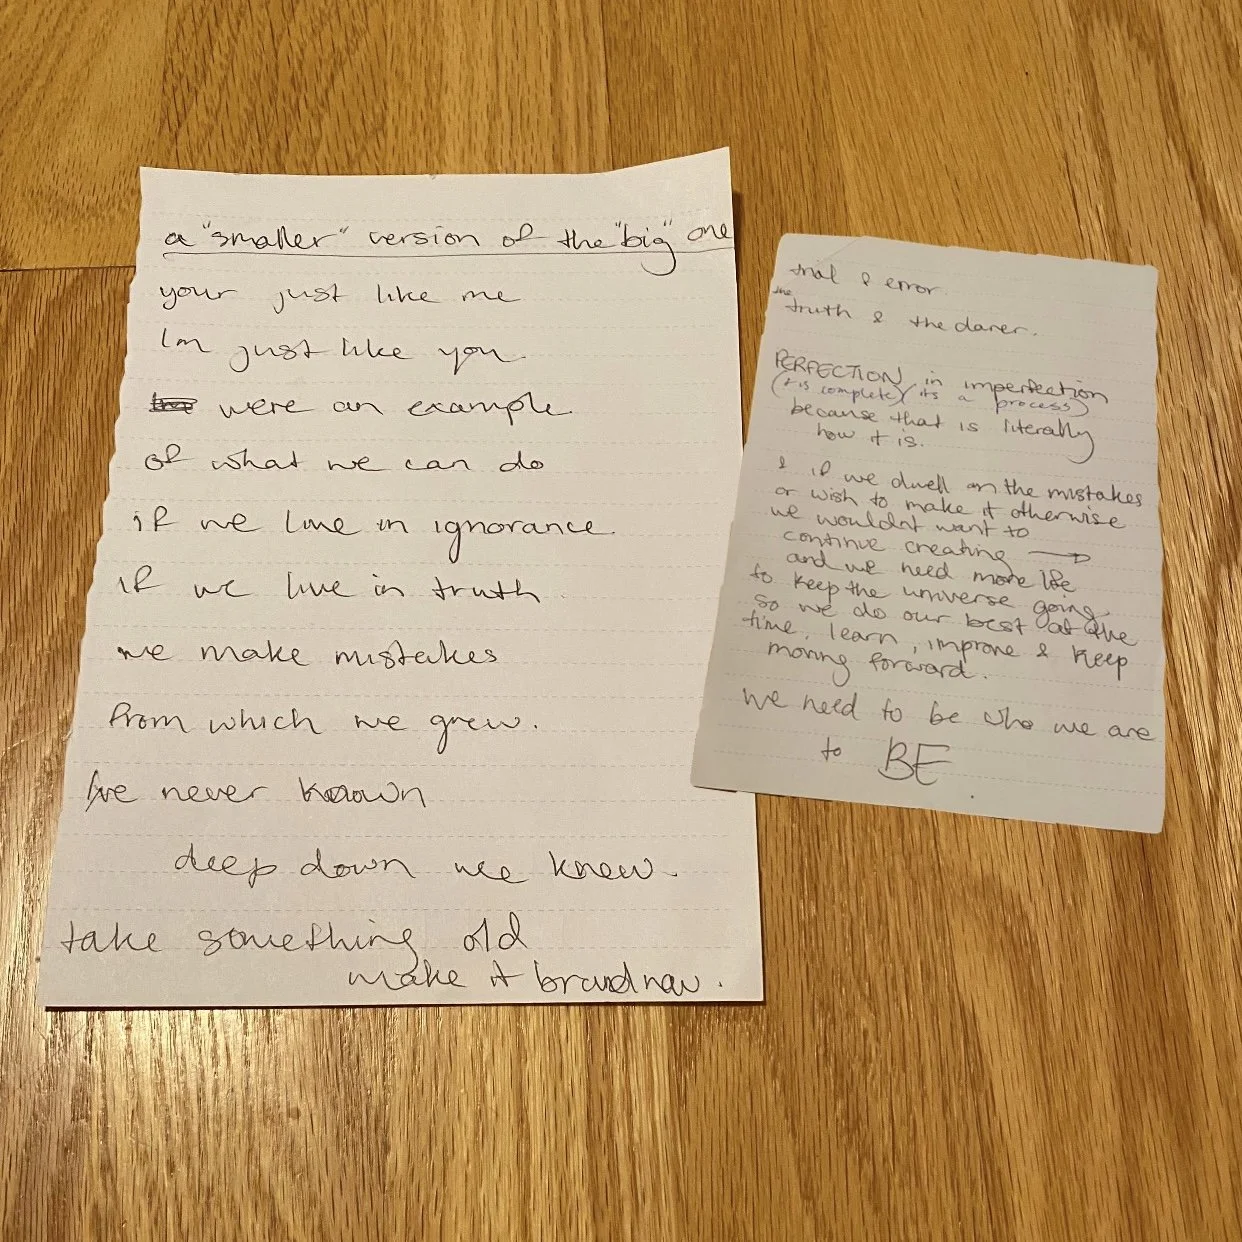 a "smaller" version of the "big" one
your just like me
Im just like you.
were an example.
of what we can do
if we live in ignorance.
if we live in truth.
we make mistakes
from which we grew.
I've never known
deep down we knew.
take something old
make it brand new.
trial & error.
the truth & the darer.
PERFECTION in imperfection
(it is complete) (its a process)
because that is literally
how it is.
& if we dwell on the mistakes
or wish to make it otherwise
we wouldnt want to
continue creating →
and we need more life
to keep the universe going
so we do our best at the
time, learn, improve & keep
moving forward.
we need to be who we are
to BE